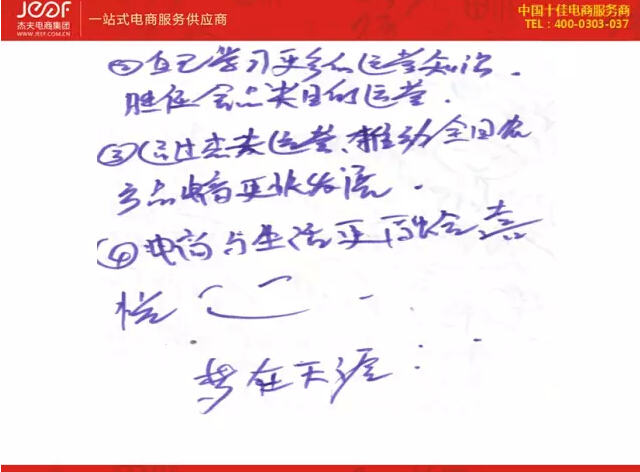 JEFF
杰夫电商集团
WWW.JEFF.COM.CN
一站式电商服务供应商
中国十佳电商服务商
TEL：400-0303-037
②自己学习更多的运营知识.
胜任全品类目的运营.
③通过杰夫运营、推动全国农
产品电商更快发展.
④电商与生活更融合喜
悦
梦在天涯: